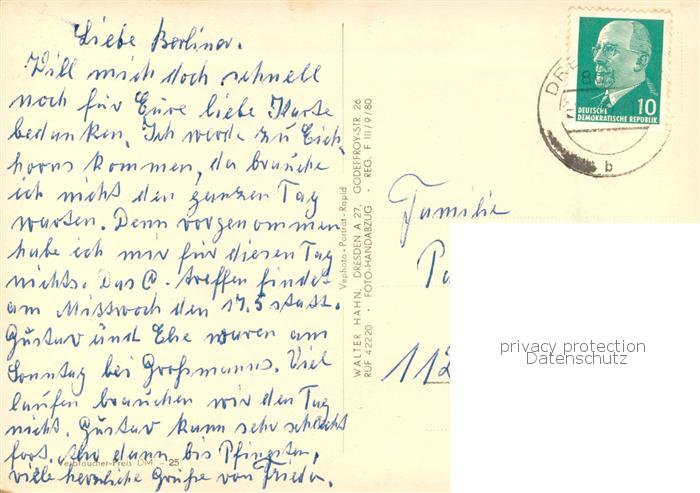 Liebe Berliner.
Will mich doch schnell
noch für Eure liebe Karte
bedanken. Ich werde zu Eich-
horns kommen, da brauche
ich nicht den ganzen Tag
warten. Denn vorgenommen
habe ich mir für diesen Tag
nichts. Das @-treffen findet
am Mittwoch den 17.5 statt.
Gustav und Ehe waren am
Sonntag bei Großmanns. Viel
laufen brauchen wir den Tag
nicht. Gustav kann sehr schlecht
fort. Also dann bis Pfingsten,
viele herzliche Grüße von Frieda.
Verbraucher-Preis DM -.25
Vephota-Porträt-Rapid
WALTER HAHN, DRESDEN A 27, GODEFFROY-STR. 26
RUF 42220 · FOTO-HANDABZUG · REG. F III/9/80
DRE
8
10
DEUTSCHE
DEMOKRATISCHE REPUBLIK
b
Familie
112
privacy protection
Datenschutz